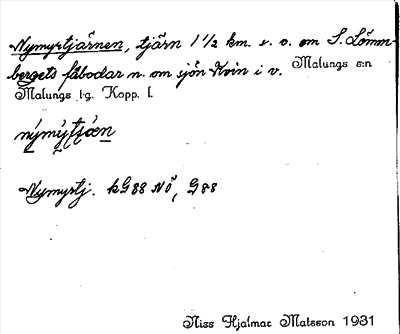 Nymyrstjärnen, tjärn 1 1/2 km. v. o. om S. Lömm-
bergets fäbodar n. om sjön Kvin i v.
Malungs s:n
Malungs t:g. Kopp. l.
Nymyrstj. kG88 NÖ, G88
Niss Hjalmar Matsson 1931